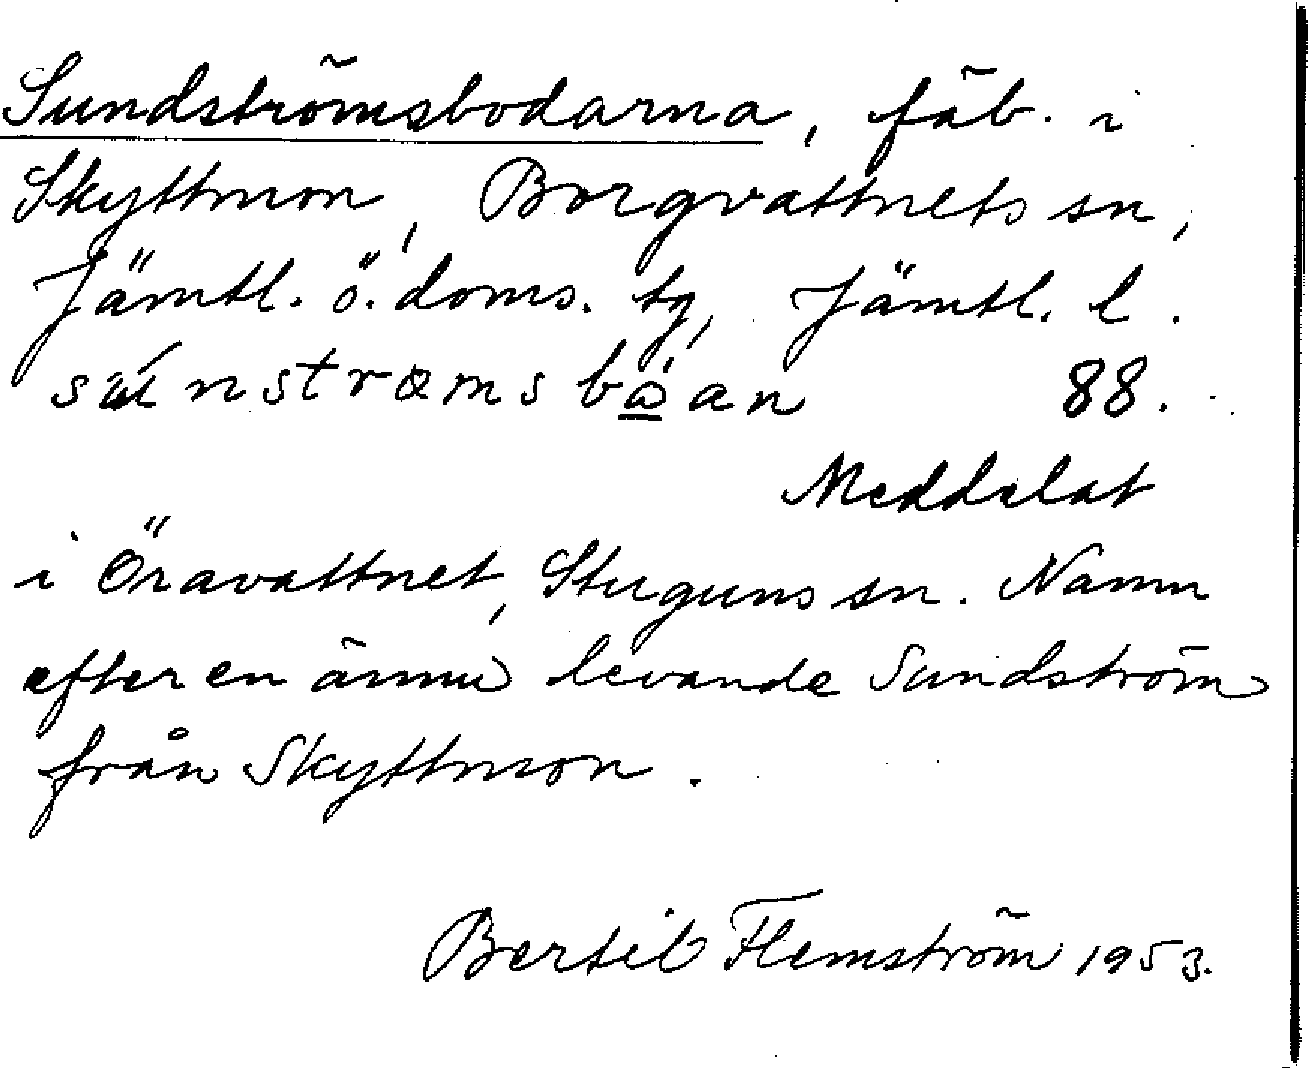 Sundströmsbodarna, fäb. i
Skyttmon, Borgvattnets sn,
Jämtl. ö. doms. tg, Jämtl. l.
88.
Meddelat
i Öravattnet, Stuguns sn. Namn
efter en ännu levande Sundström
från Skyttmon.
Bertil Flemström 1953.